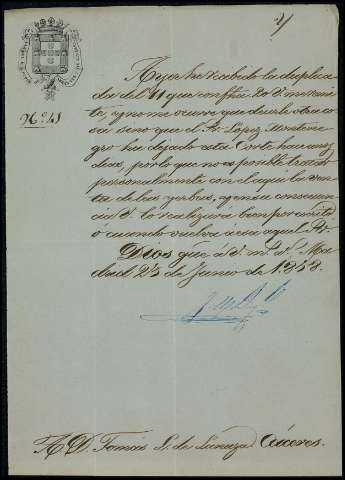 Ayer he recibido la duplica
da del 11 que con fha 20 V. me remi
te, y no me ocurre que decirle otra co
sa sino que el Sr. Lopez Montene
gro ha dejado esta Corte hace unos
dias, por lo que no es posible tratar
personalmente con el aqui la ven
ta de las yerbas, y en su consecuen
cia V. lo realizara bien por escrito
ó cuando vuelva á esa aquel Sr.
Dios gue á V. m. a. Ma
drid 23 de Junio de 1858.
A D. Tomás de Caceres.